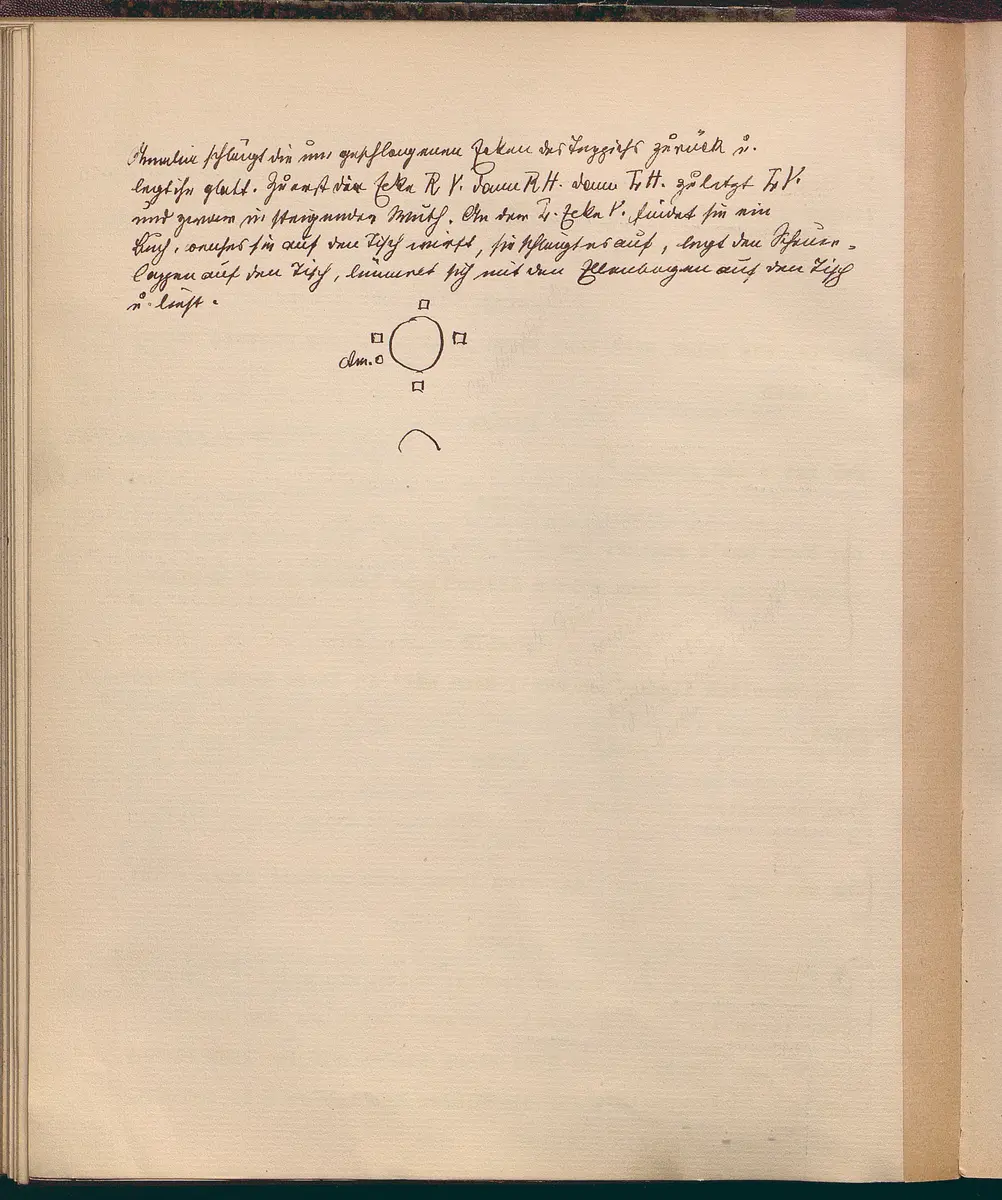 Amalie schlägt die um geschlagenen Ecken des Teppichs zurück u.
legt ihn glatt. Zuerst die Ecke R V. dann R H. dann L H. zuletzt L V.
und zwar in steigender Wuth. An der L. Ecke V. findet sie ein
Buch, welches sie auf den Tisch wirft, sie schlägt es auf, legt den Scheuer-
lappen auf den Tisch, lümmelt sich mit den Ellenbogen auf den Tisch
u. liest.
Am.